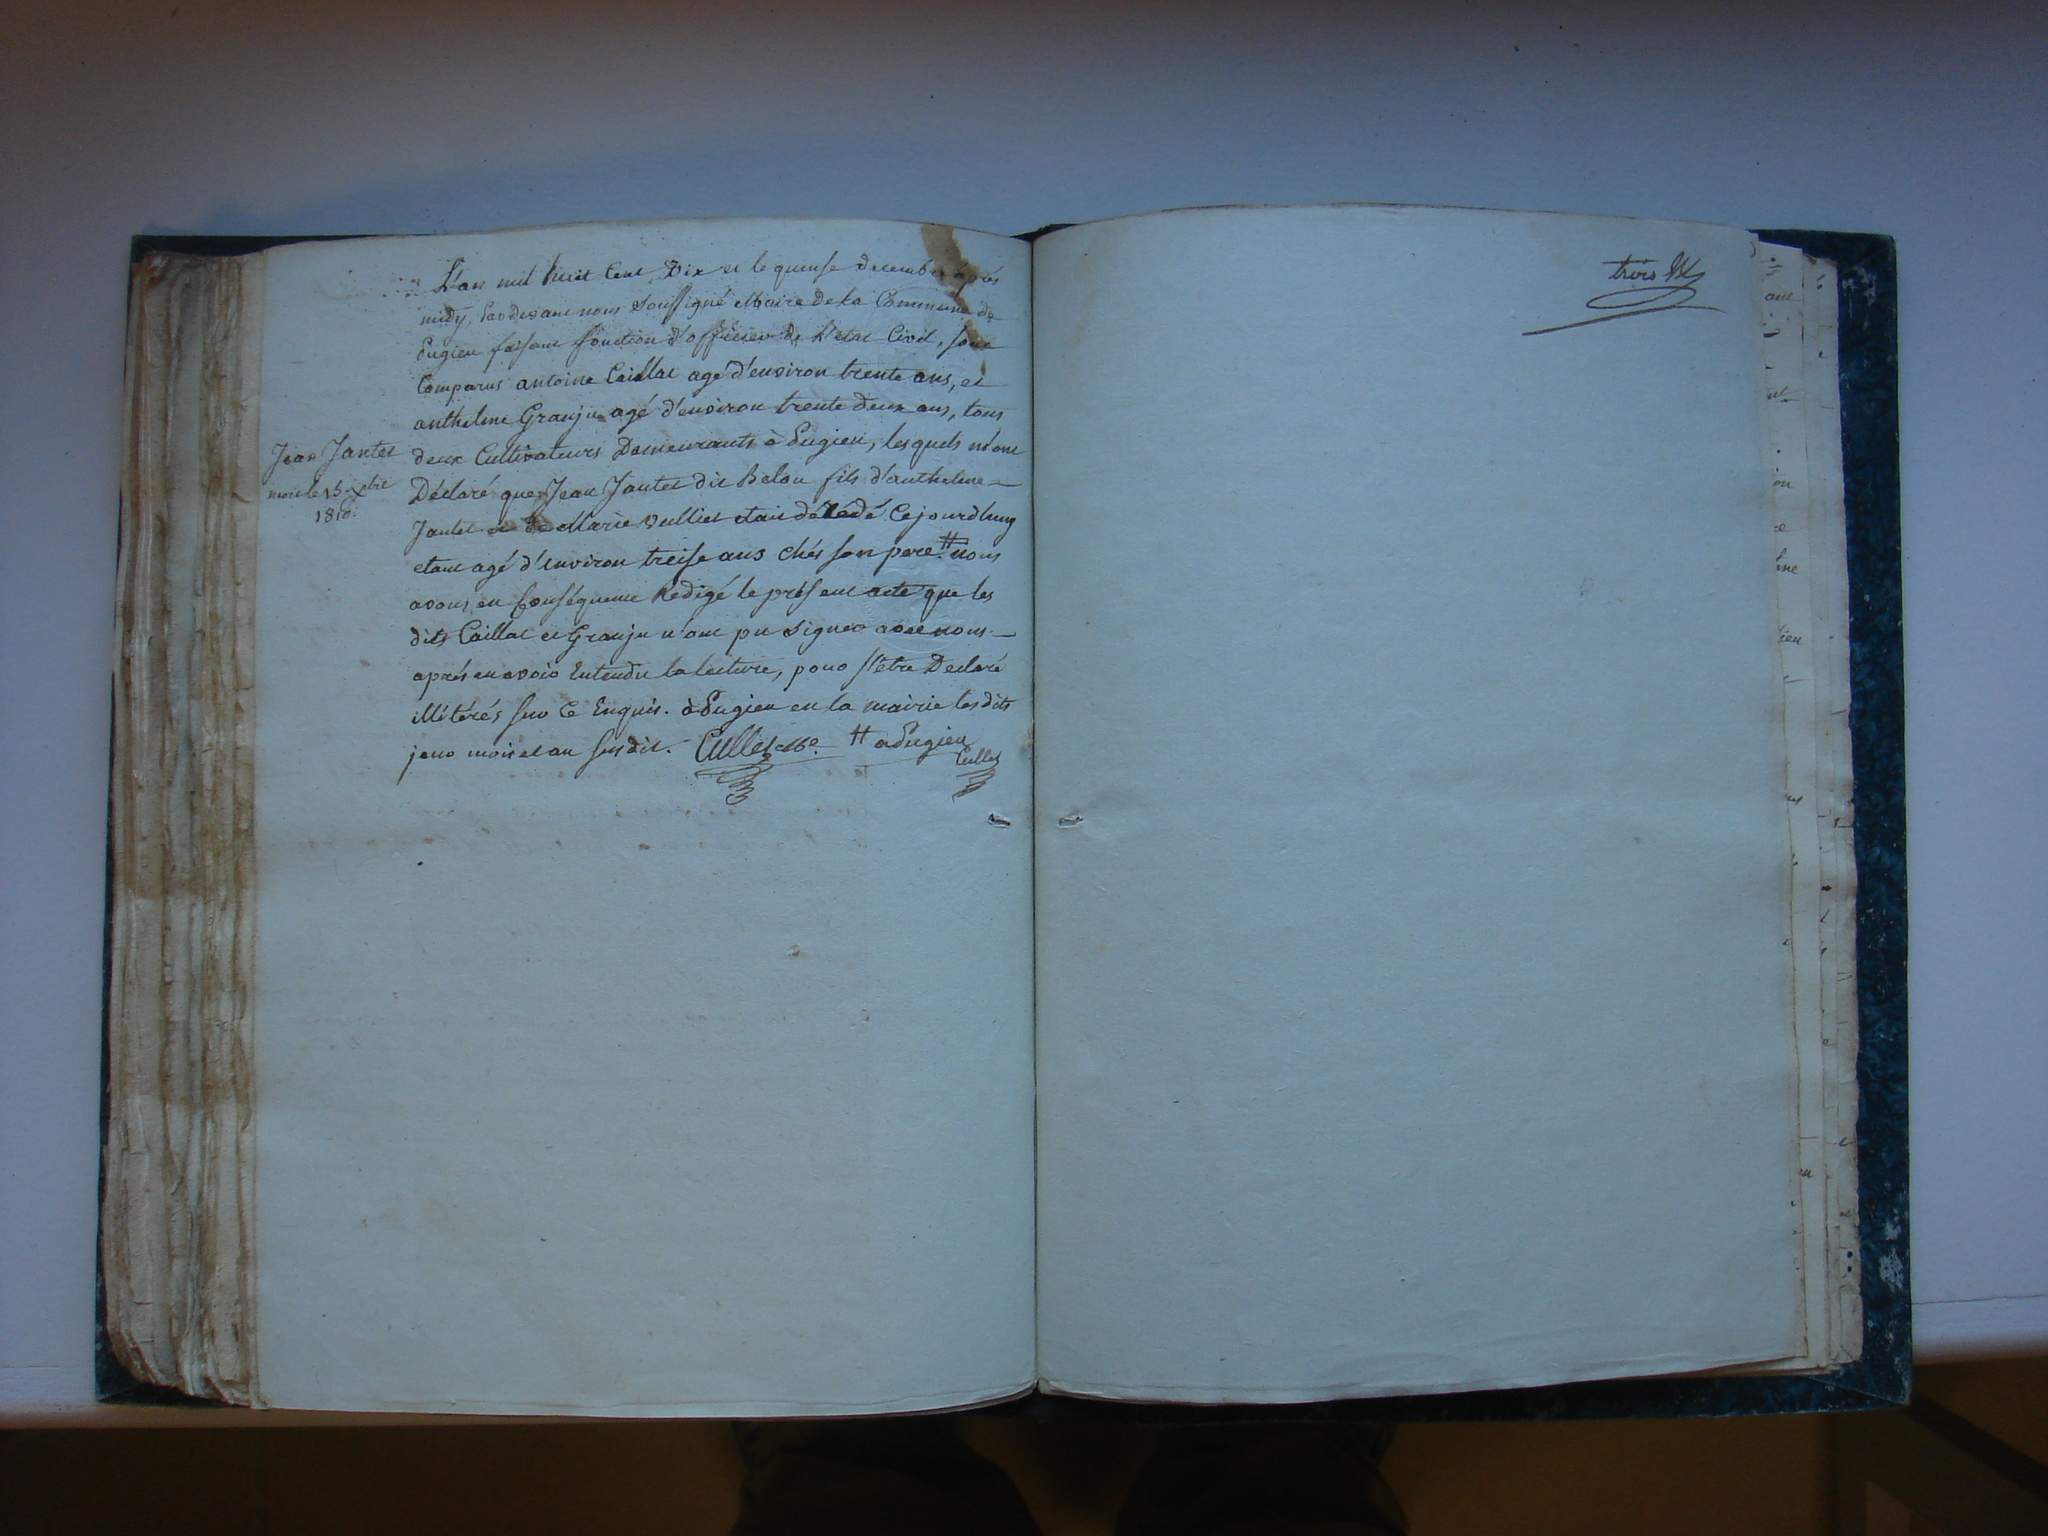 L'an mil huit Cent Dix et le quinse decembre après
midÿ, Pardevant nous soussigné Maire de la Commune de
Pugieu faisant fonction d'officier de L'etat Civil, sont
Comparus antoine Caillat agé d'environ trente ans, et
anthelme Granju agé d'environ trente deux ans, tous
deux Cultivateurs Demeurants à Pugieu, lesquels m'ont
Jean Jantet
mort le 15 xbre
1810.
Déclaré que Jean Jantet dit Belou fils d'anthelme
Jantet et de Marie vulliet etait décédé Cejourdhuy
etant agé d'environ treise ans chés son pere. # nous
avons en Conséquence Redigé le présent acte que les
dits Caillat et Granju n'ont pu signer avec nous
aprés en avoir Entendu la lecture, pour s'être Declaré
illitérés sur Ce Enquis. à Pugieu en la mairie lesdits
jour mois et an susdit. Cullet Me. # a Pugieu
Cullet
trois